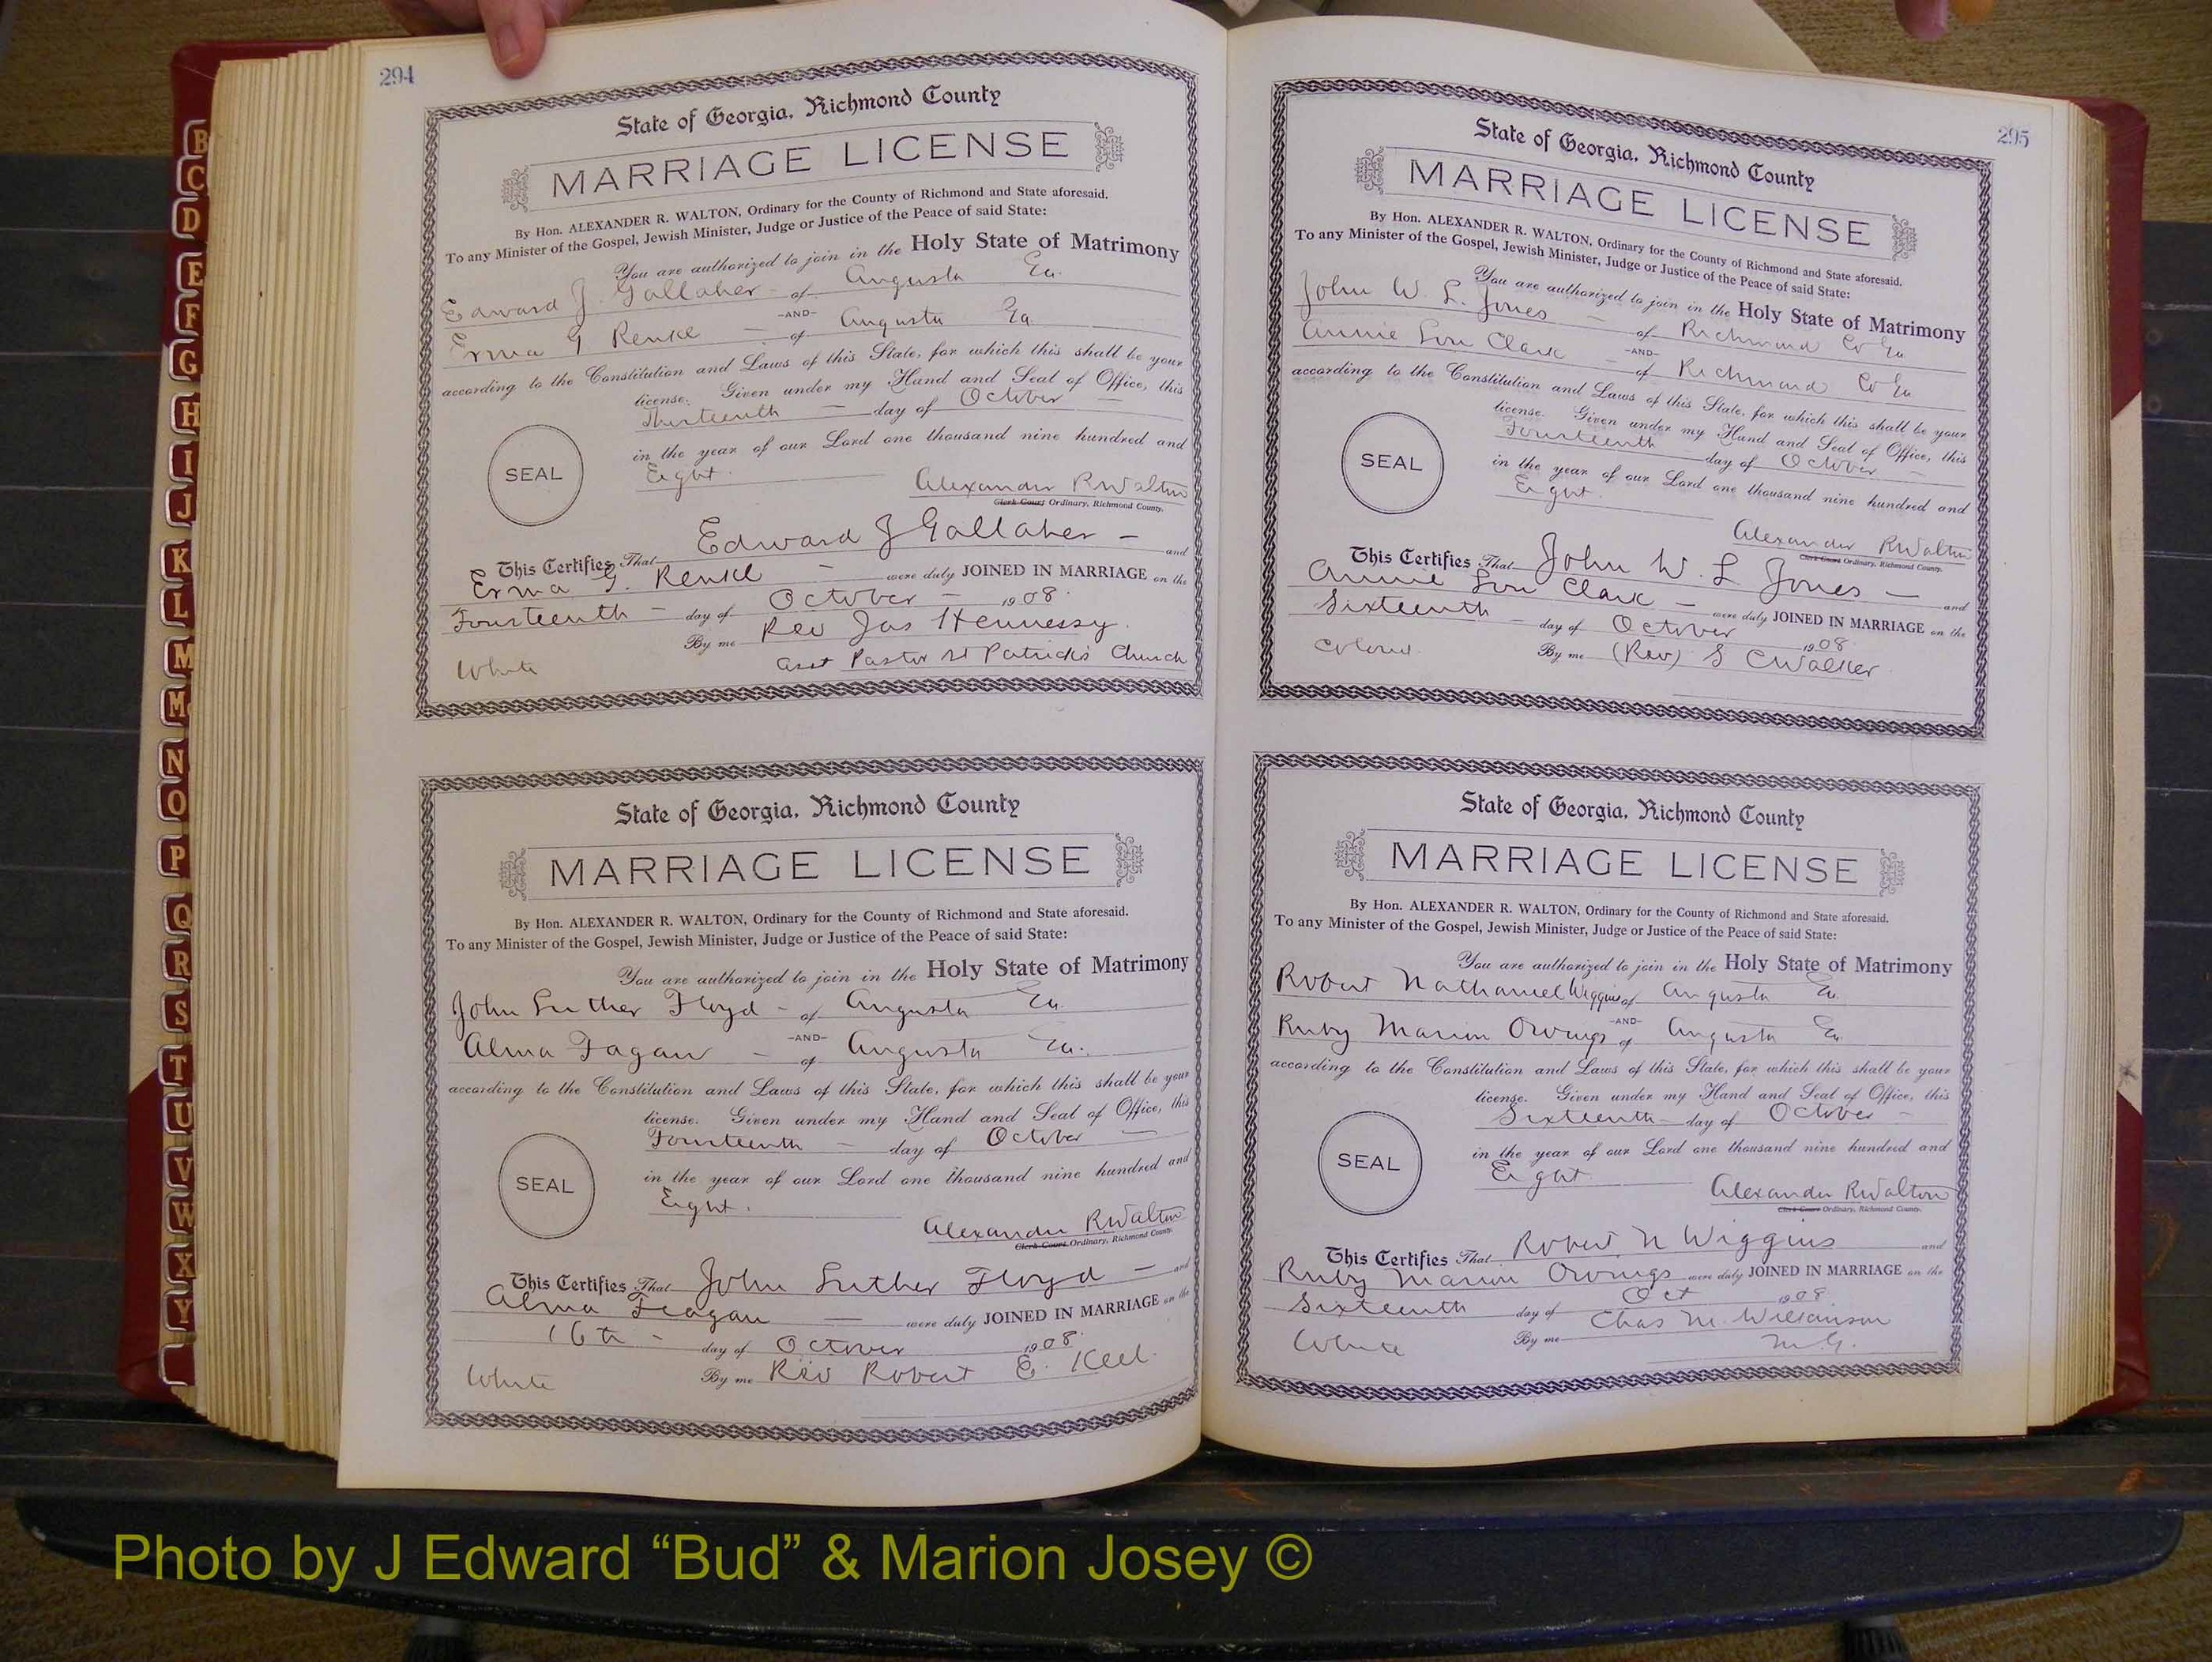 294
State of Georgia, Richmond County
MARRIAGE LICENSE
By Hon. ALEXANDER R. WALTON, Ordinary for the County of Richmond and State aforesaid.
To any Minister of the Gospel, Jewish Minister, Judge or Justice of the Peace of said State:
You are authorized to join in the Holy State of Matrimony
Edward J. Gallaher - of Augusta Ga.
-AND-
Erma G Renkl - of Augusta Ga.
according to the Constitution and Laws of this State, for which this shall be your
license. Given under my Hand and Seal of Office, this
Thirteenth - day of October -
in the year of our Lord one thousand nine hundred and
SEAL
Eight.
Alexander R Walton
Clerk Court Ordinary, Richmond County.
This Certifies That Edward J Gallaher - and
Erma G. Renkl - were duly JOINED IN MARRIAGE on the
Fourteenth - day of October - 1908.
By me Rev Jas Hennessy.
White
Asst Pastor St Patricks Church
State of Georgia, Richmond County
MARRIAGE LICENSE
By Hon. ALEXANDER R. WALTON, Ordinary for the County of Richmond and State aforesaid.
To any Minister of the Gospel, Jewish Minister, Judge or Justice of the Peace of said State:
You are authorized to join in the Holy State of Matrimony
John Luther Floyd - of Augusta Ga.
-AND-
Alma Fagan - of Augusta Ga.
according to the Constitution and Laws of this State, for which this shall be your
license. Given under my Hand and Seal of Office, this
Fourteenth - day of October -
in the year of our Lord one thousand nine hundred and
SEAL
Eight.
Alexander R Walton
Clerk Court Ordinary, Richmond County.
This Certifies That John Luther Floyd - and
Alma Feagan - were duly JOINED IN MARRIAGE on the
16th - day of October 1908.
White
By me Rev Robert E.
295
State of Georgia, Richmond County
MARRIAGE LICENSE
By Hon. ALEXANDER R. WALTON, Ordinary for the County of Richmond and State aforesaid.
To any Minister of the Gospel, Jewish Minister, Judge or Justice of the Peace of said State:
You are authorized to join in the Holy State of Matrimony
John W. L. Jones - of Richmond Co Ga
-AND-
Annie Lou Clark - of Richmond Co Ga
according to the Constitution and Laws of this State, for which this shall be your
license. Given under my Hand and Seal of Office, this
Fourteenth day of October -
in the year of our Lord one thousand nine hundred and
SEAL
Eight.
Alexander R Walton
Clerk Court Ordinary, Richmond County.
This Certifies That John W. L Jones - and
Annie Lou Clark - were duly JOINED IN MARRIAGE on the
Sixteenth - day of October 1908
Colored.
By me (Rev) S C Walker
State of Georgia, Richmond County
MARRIAGE LICENSE
By Hon. ALEXANDER R. WALTON, Ordinary for the County of Richmond and State aforesaid.
To any Minister of the Gospel, Jewish Minister, Judge or Justice of the Peace of said State:
You are authorized to join in the Holy State of Matrimony
Robert Nathaniel Wiggins of Augusta Ga.
-AND-
Ruby Marion Owings of Augusta Ga.
according to the Constitution and Laws of this State, for which this shall be your
license. Given under my Hand and Seal of Office, this
Sixteenth day of October -
in the year of our Lord one thousand nine hundred and
SEAL
Eight.
Alexander R Walton
Clerk Court Ordinary, Richmond County.
This Certifies That Robert N Wiggins and
Ruby Marion Owings were duly JOINED IN MARRIAGE on the
Sixteenth day of Oct 1908
White
By me Chas M. Wilkinson
M.G.
B
C
D
E
F
G
H
I
J
K
L
M
Mc
N
O
P
Q
R
S
T
U
V
W
X
Y
Photo by J Edward “Bud” & Marion Josey ©